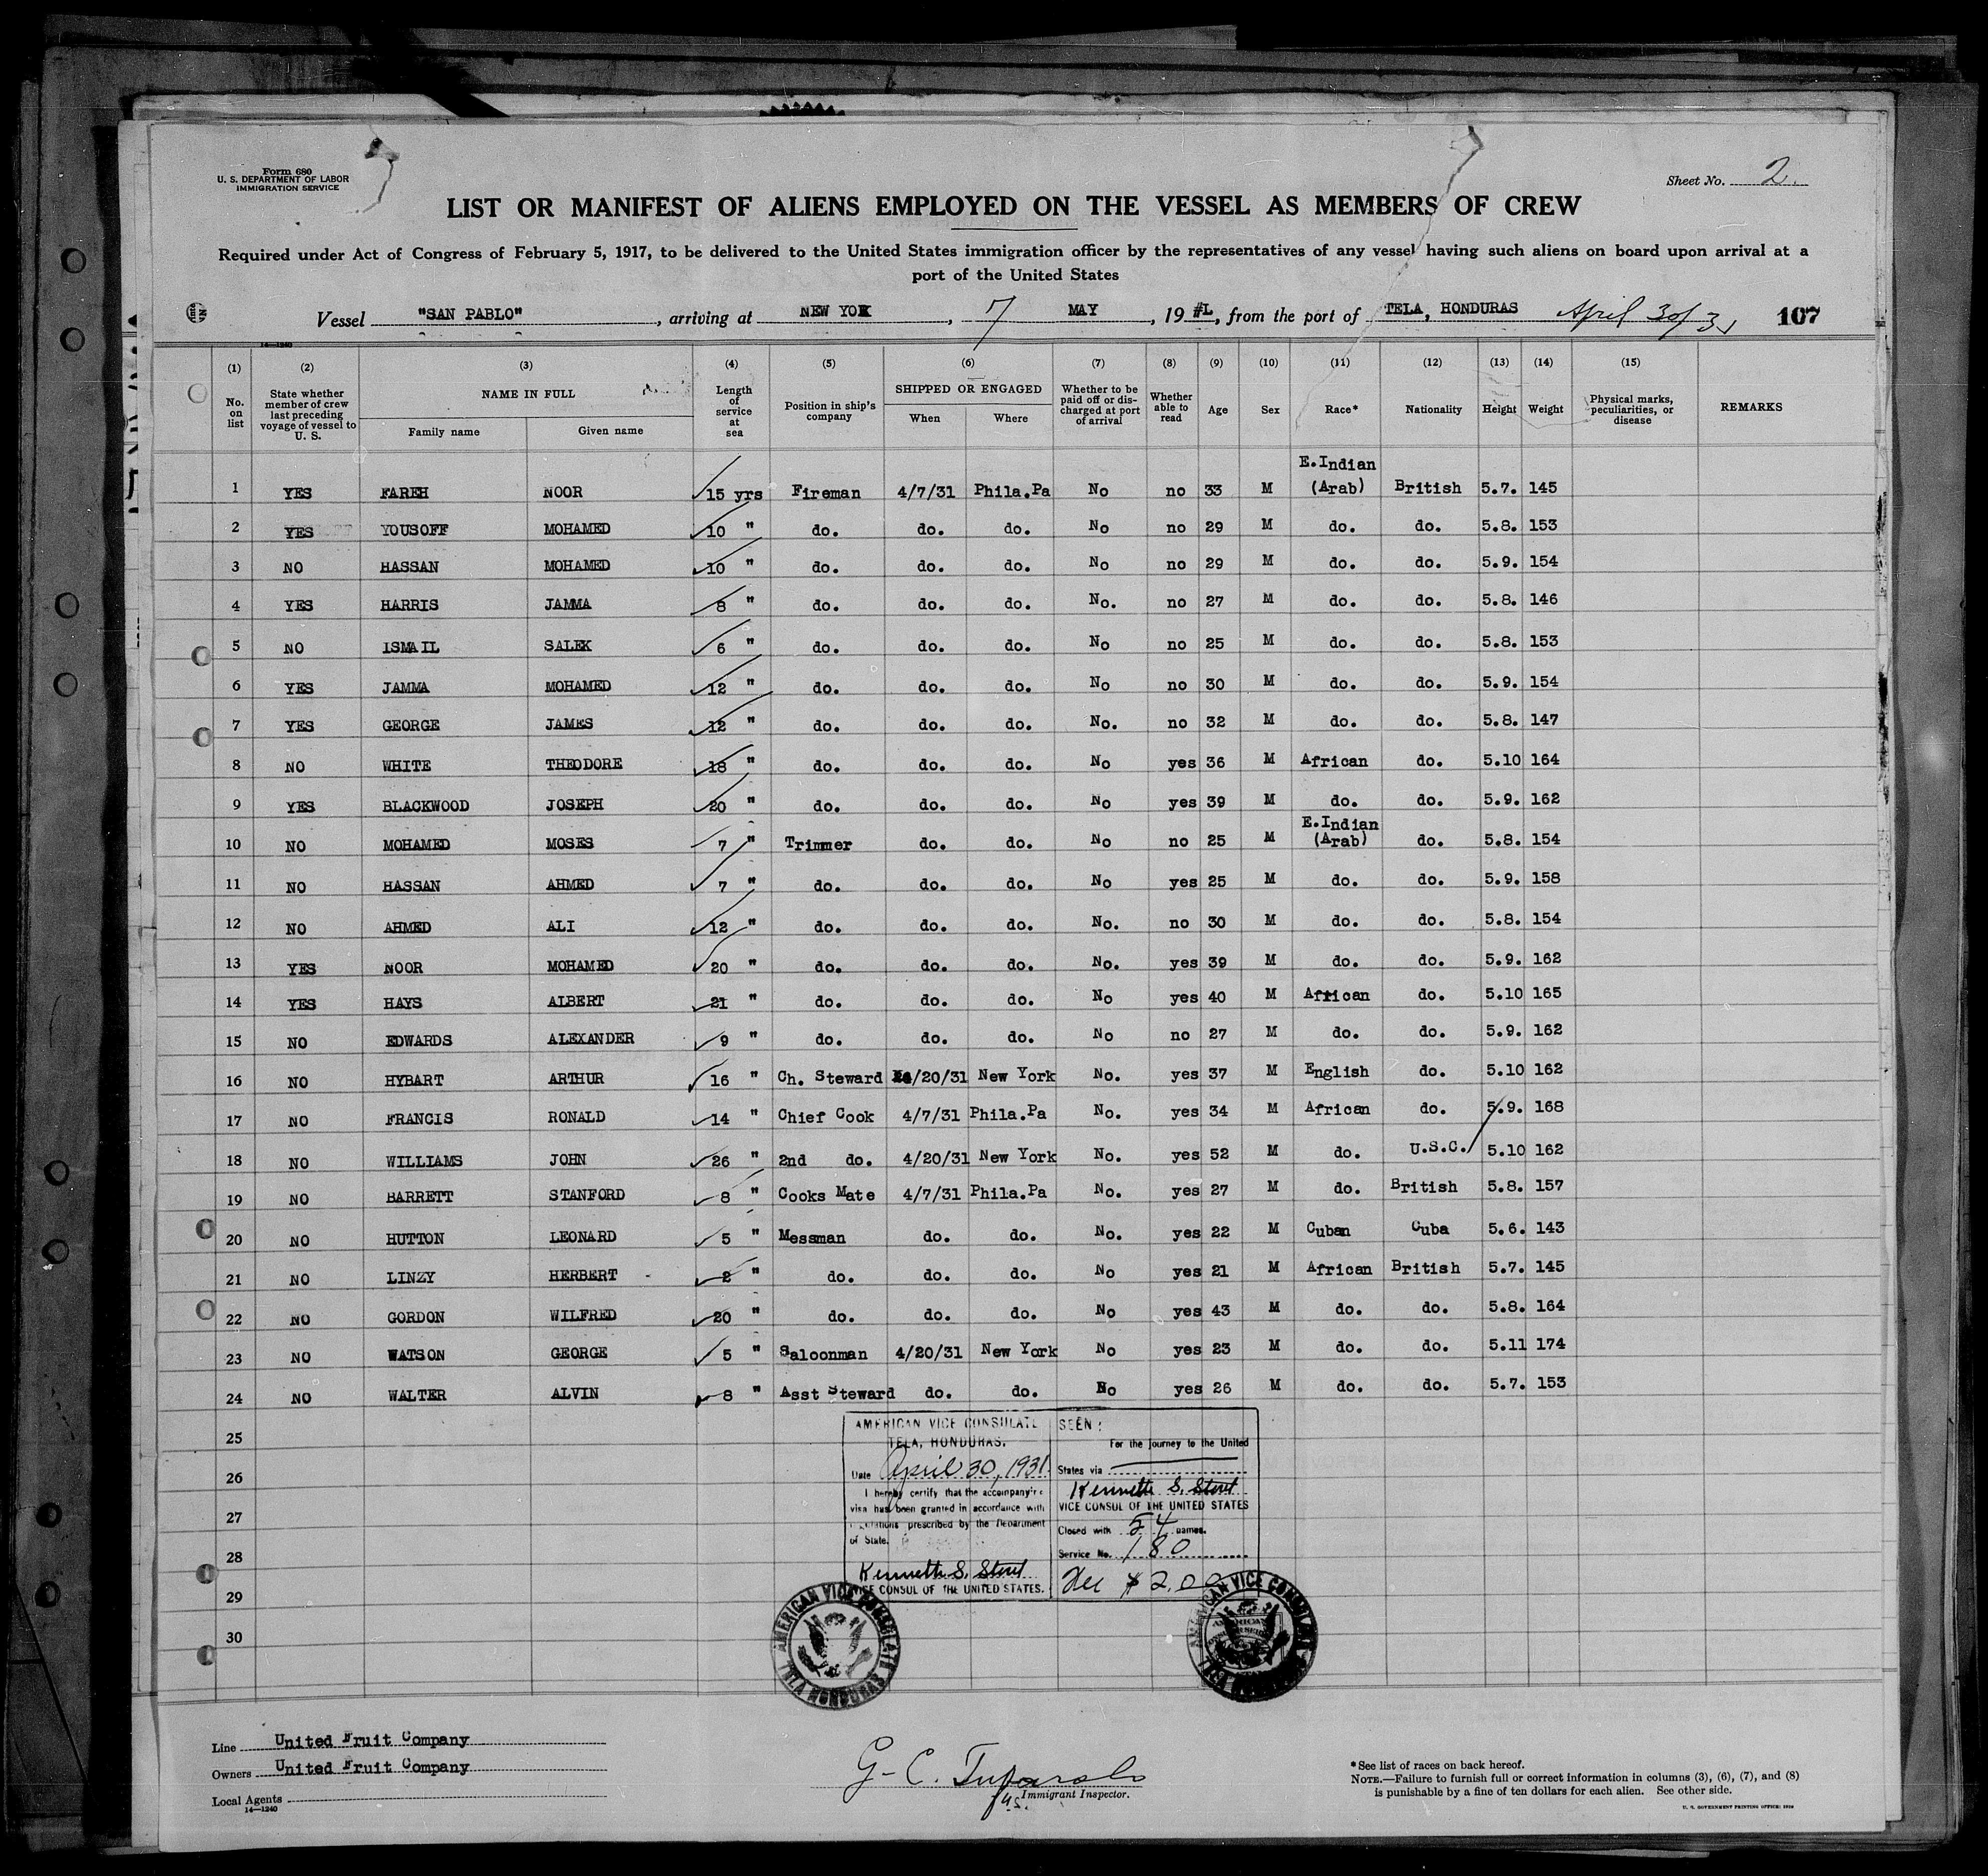 Form 680
U. S. DEPARTMENT OF LABOR
IMMIGRATION SERVICE
Sheet No. 2.
LIST OR MANIFEST OF ALIENS EMPLOYED ON THE VESSEL AS MEMBERS OF CREW
Required under Act of Congress of February 5, 1917, to be delivered to the United States immigration officer by the representatives of any vessel having such aliens on board upon arrival at a
port of the United States
Vessel "SAN PABLO", arriving at NEW YOK, 7 MAY, 19, from the port of TELA, HONDURAS April 30/31 107
14—1240
(1) (2) (3) (4) (5) (6) (7) (8) (9) (10) (11) (12) (13) (14) (15)
No. on list State whether member of crew last preceding voyage of vessel to U. S. NAME IN FULL Family name Given name Length of service at sea Position in ship's company SHIPPED OR ENGAGED When Where Whether to be paid off or discharged at port of arrival Whether able to read Age Sex Race* Nationality Height Weight Physical marks, peculiarities, or disease REMARKS
1 YES FAREH NOOR 15 yrs Fireman 4/7/31 Phila.Pa No no 33 M E.Indian (Arab) British 5.7. 145
2 YES YOUSOFF MOHAMED 10 " do. do. do. No no 29 M do. do. 5.8. 153
3 NO HASSAN MOHAMED 10 " do. do. do. No no 29 M do. do. 5.9. 154
4 YES HARRIS JAMMA 8 " do. do. do. No. no 27 M do. do. 5.8. 146
5 NO ISMAIL SALEK 6 " do. do. do. No no 25 M do. do. 5.8. 153
6 YES JAMMA MOHAMED 12 " do. do. do. No no 30 M do. do. 5.9. 154
7 YES GEORGE JAMES 12 " do. do. do. No. no 32 M do. do. 5.8. 147
8 NO WHITE THEODORE 18 " do. do. do. No yes 36 M African do. 5.10 164
9 YES BLACKWOOD JOSEPH 20 " do. do. do. No yes 39 M do. do. 5.9. 162
10 NO MOHAMED MOSES 7 " Trimmer do. do. No no 25 M E.Indian (Arab) do. 5.8. 154
11 NO HASSAN AHMED 7 " do. do. do. No yes 25 M do. do. 5.9. 158
12 NO AHMED ALI 12 " do. do. do. No. no 30 M do. do. 5.8. 154
13 YES NOOR MOHAMED 20 " do. do. do. No. yes 39 M do. do. 5.9. 162
14 YES HAYS ALBERT 21 " do. do. do. No yes 40 M African do. 5.10 165
15 NO EDWARDS ALEXANDER 9 " do. do. do. No no 27 M do. do. 5.9. 162
16 NO HYBART ARTHUR 16 " Ch. Steward 4/20/31 New York No. yes 37 M English do. 5.10 162
17 NO FRANCIS RONALD 14 " Chief Cook 4/7/31 Phila.Pa No. yes 34 M African do. 5.9. 168
18 NO WILLIAMS JOHN 26 " 2nd do. 4/20/31 New York No. yes 52 M do. U.S.C. 5.10 162
19 NO BARRETT STANFORD 8 " Cooks Mate 4/7/31 Phila.Pa No. yes 27 M do. British 5.8. 157
20 NO HUTTON LEONARD 5 " Messman do. do. No. yes 22 M Cuban Cuba 5.6. 143
21 NO LINZY HERBERT 2 " do. do. do. No yes 21 M African British 5.7. 145
22 NO GORDON WILFRED 20 " do. do. do. No yes 43 M do. do. 5.8. 164
23 NO WATSON GEORGE 5 " Saloonman 4/20/31 New York No yes 23 M do. do. 5.11 174
24 NO WALTER ALVIN 8 " Asst Steward do. do. No yes 26 M do. do. 5.7. 153
25
26
27
28
29
30
AMERICAN VICE CONSULATE
TELA, HONDURAS.
Date April 30, 1931.
I hereby certify that the accompanying
visa has been granted in accordance with
regulations prescribed by the Department
of State.
Kenneth S. Stout
VICE CONSUL OF THE UNITED STATES.
SEEN:
For the journey to the United
States via
Kenneth S. Stout
VICE CONSUL OF THE UNITED STATES
Closed with 54 names.
Service No. 180
Fee $2.00
AMERICAN VICE CONSULATE TELA HONDURAS
AMERICAN VICE CONSULATE TELA HONDURAS
Line United Fruit Company
Owners United Fruit Company
Local Agents
14—1240
G. C.
Immigrant Inspector.
*See list of races on back hereof.
NOTE.—Failure to furnish full or correct information in columns (3), (6), (7), and (8)
is punishable by a fine of ten dollars for each alien. See other side.